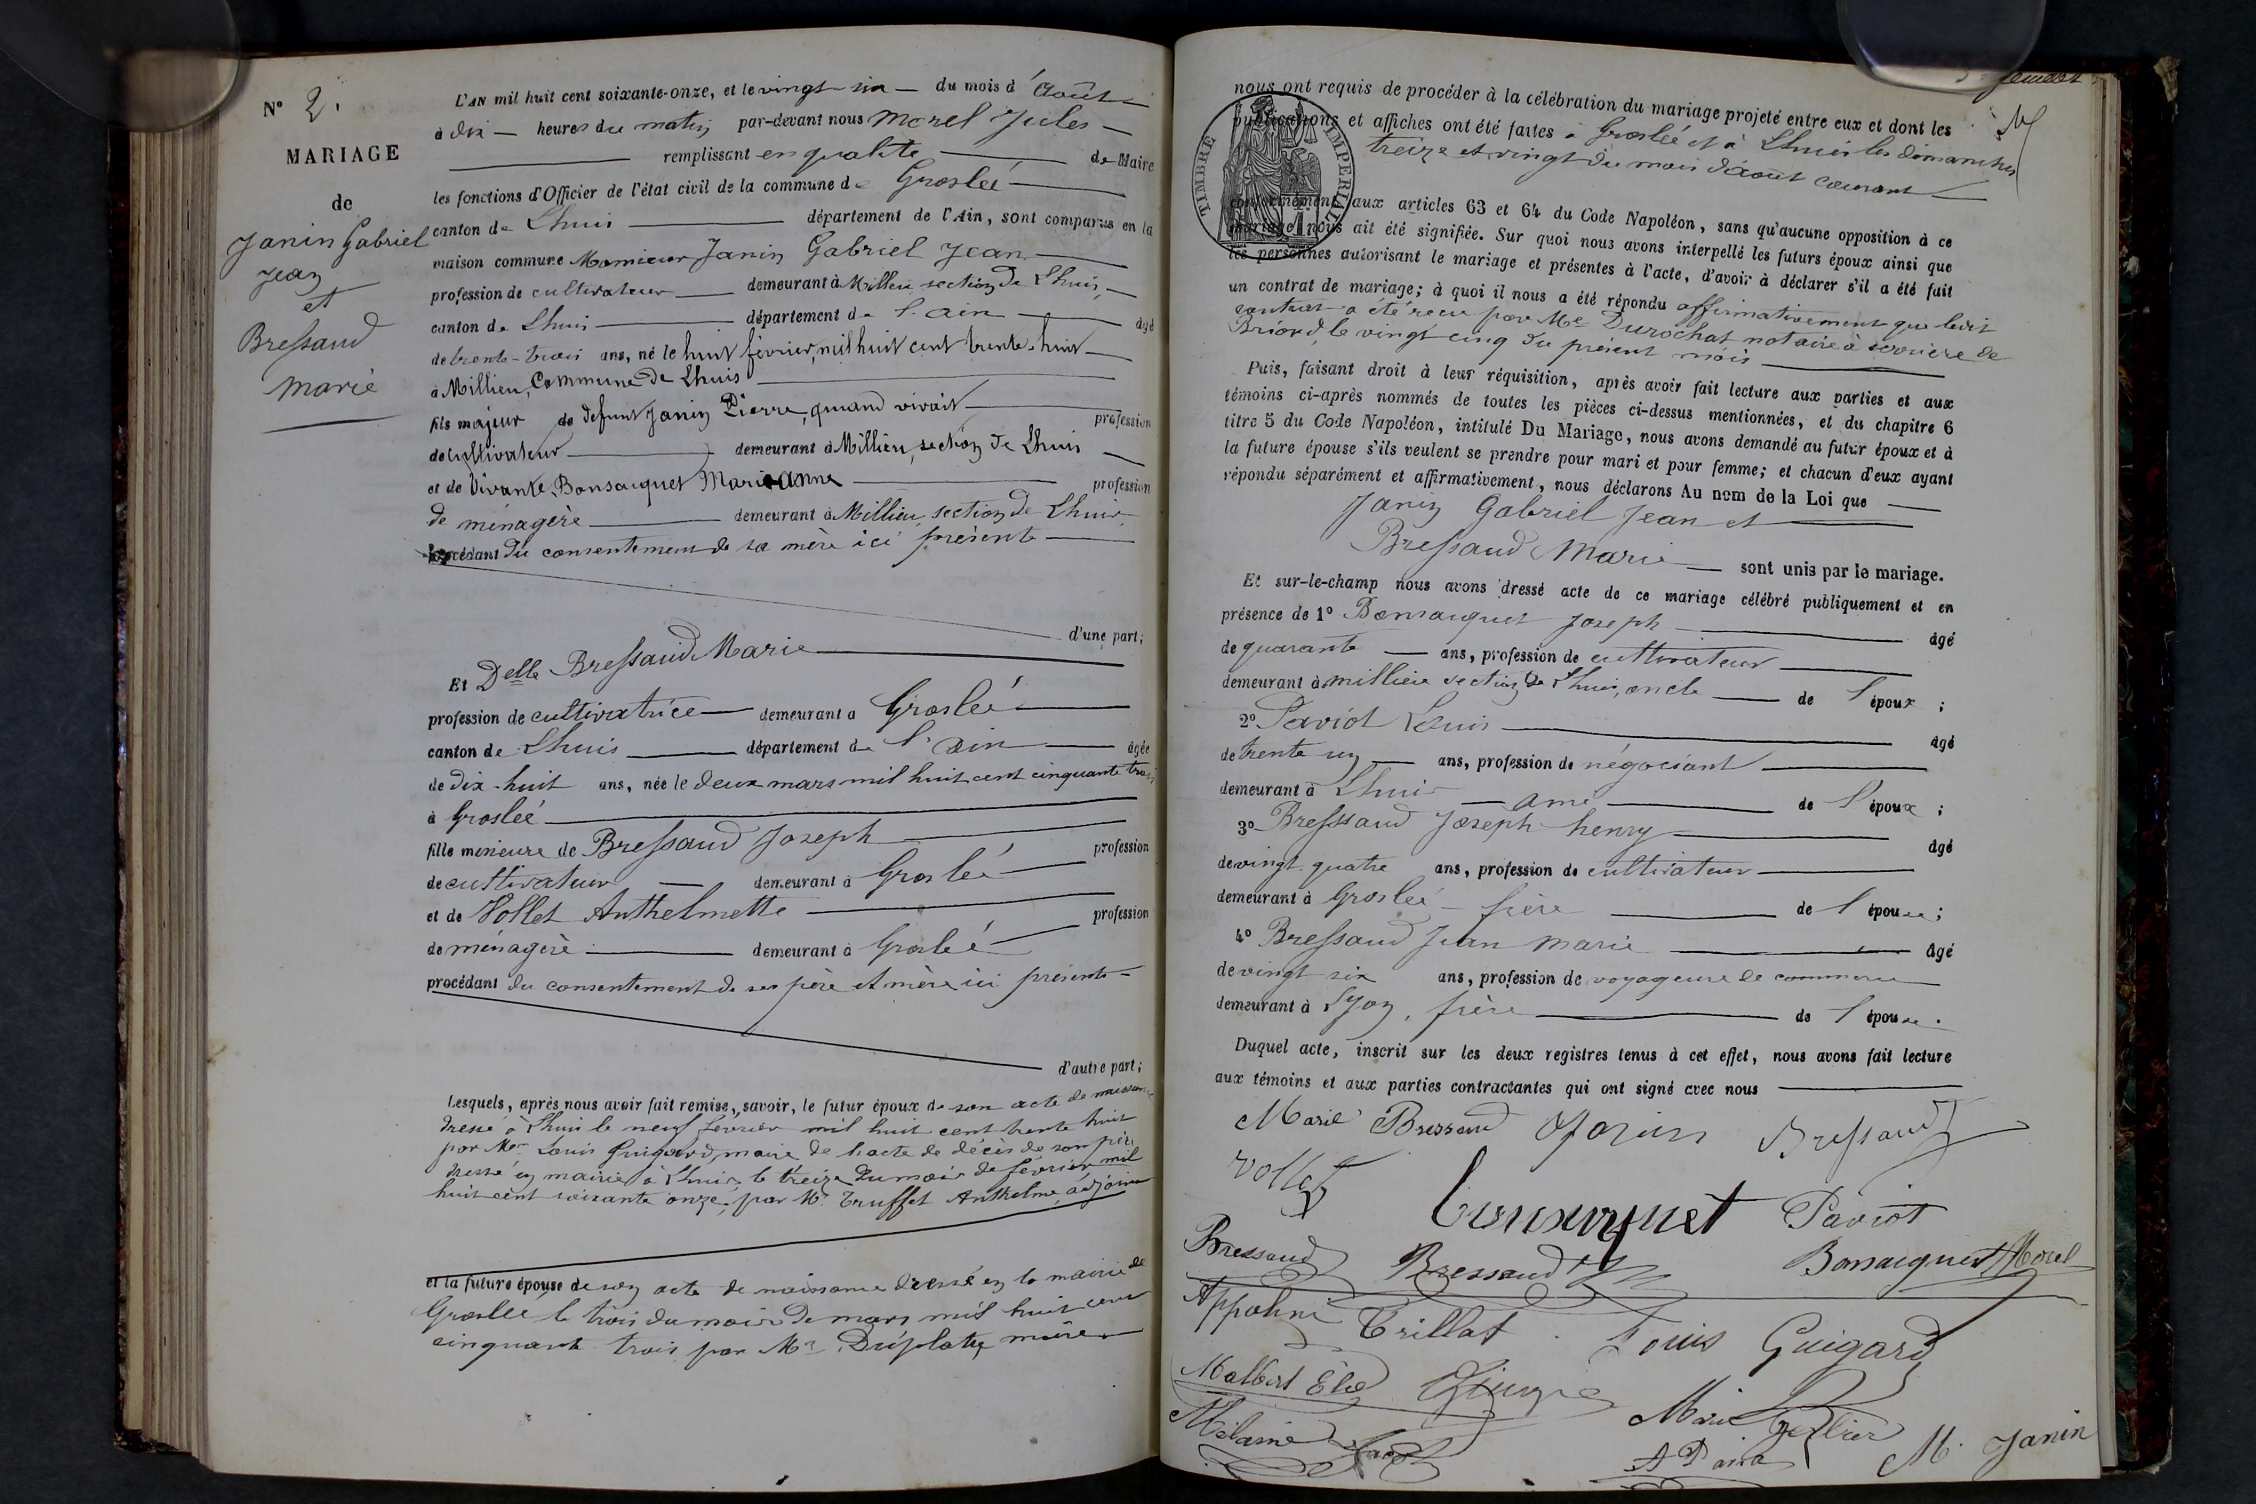 N° 2.
MARIAGE
de
Janin Gabriel
Jean
et
Bressaud
marie
L'AN mil huit cent soixante-onze, et le vingt six du mois d'Août
à dix heures du matin par-devant nous Morel Jules
remplissant en qualité de Maire
les fonctions d'Officier de l'état civil de la commune de Groslée
canton de Lhuis département de l'Ain, sont comparus en la
maison commune Monsieur Janin Gabriel Jean
profession de cultivateur demeurant à Millieu section de Lhuis,
canton de Lhuis département de l'ain âgé
de trente-trois ans, né le huit février, mil huit cent trente-huit
à Millieu, Commune de Lhuis
fils majeur de defunt Janin Pierre, quand vivait profession
de cultivateur demeurant à Millieu, section de Lhuis
et de Vivante, Bonsacquet Marianne profession
de ménagère demeurant à Millieu, section de Lhuis
procédant du consentement de sa mère ici présente
d'une part;
Et Delle Bressaud Marie
profession de cultivatrice demeurant à Groslée
canton de Lhuis département de l'ain âgée
de dix-huit ans, née le deux mars mil huit cent cinquante trois
à Groslée
fille mineure de Bressaud Joseph profession
de cultivateur demeurant à Groslée
et de Vollet Anthelmette profession
de ménagère demeurant à Groslée
procédant du consentement de ses père et mère ici présents
d'autre part;
Lesquels, après nous avoir fait remise, savoir, le futur époux de son acte de naissance
dressé à Lhuis le neuf février mil huit cent trente huit
par Mr Louis Guigard, maire de l'acte de décès de son père
dressé en mairie à Lhuis le treize du mois de février mil
huit cent soixante onze, par Mr Truffet Anthelme, adjoint
et la future épouse de son acte de naissance dressé en la mairie de
Groslée le trois du mois de mars mil huit cent
cinquante trois par Mr Duplatre, maire
nous ont requis de procéder à la célébration du mariage projeté entre eux et dont les
publications et affiches ont été faites à Groslée et à Lhuis les dimanches
treize et vingt du mois d'aout courant
TIMBRE IMPERIAL
conformément aux articles 63 et 64 du Code Napoléon, sans qu'aucune opposition à ce
mariage nous ait été signifiée. Sur quoi nous avons interpellé les futurs époux ainsi que
les personnes autorisant le mariage et présentes à l'acte, d'avoir à déclarer s'il a été fait
un contrat de mariage; à quoi il nous a été répondu affirmativement que ledit
contrat a été reçu par Me Durochat notaire à serrière de
Briord, le vingt cinq du présent mois
Puis, faisant droit à leur réquisition, après avoir fait lecture aux parties et aux
témoins ci-après nommés de toutes les pièces ci-dessus mentionnées, et du chapitre 6
titre 5 du Code Napoléon, intitulé Du Mariage, nous avons demandé au futur époux et à
la future épouse s'ils veulent se prendre pour mari et pour femme; et chacun d'eux ayant
répondu séparément et affirmativement, nous déclarons Au nom de la Loi que
Janin Gabriel Jean et
Bressaud Marie sont unis par le mariage.
Et sur-le-champ nous avons dressé acte de ce mariage célébré publiquement et en
présence de 1° Bonsacquet Joseph âgé
de quarante ans, profession de cultivateur
demeurant à millieu section de Lhuis, oncle de l'époux;
2° Paviot Louis âgé
de trente un ans, profession de négociant
demeurant à Lhuis ami de l'époux;
3° Bresssaud Joseph henry âgé
de vingt quatre ans, profession de cultivateur
demeurant à Groslée frère de l'épouse;
4° Bressaud Jean marie âgé
de vingt six ans, profession de voyageure de commerce
demeurant à Lyon, frère de l'épouse.
Duquel acte, inscrit sur les deux registres tenus à cet effet, nous avons fait lecture
aux témoins et aux parties contractantes qui ont signé avec nous
Marie Bressaud Janin Bressaud
Vollet
Bonsarquet Paviot
Bressaud Bressaud Bonsacquet Morel
Appolini Trillat Louis Guigard
Malbert Elie
Mélanie Marie Tellier
M. Janin